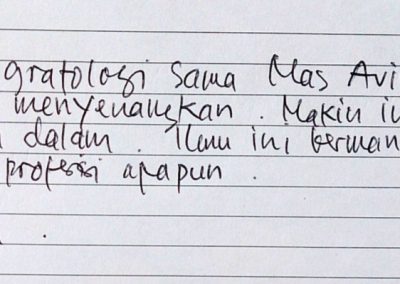 gratologi sama Mas Avi
menyenangkan. Makin in
dalam. Ilmu ini berman
profesi apapun.
.